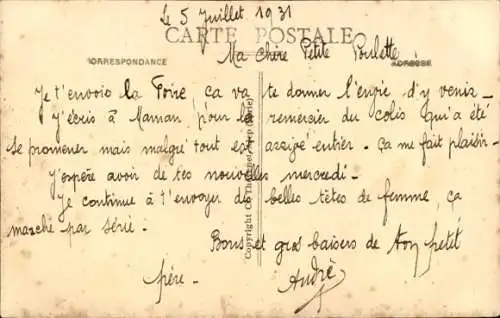 Le 5 Juillet 1931
CARTE POSTALE
Ma Chère Petite Poulette
CORRESPONDANCE
ADRESSE
Je t'envoie la Foire, ça va te donner l'envie d'y venir -
J'écris à Maman pour la remercier du colis qui a été
se promener mais malgré tout est arrivé entier - Ça me fait plaisir -
J'espère avoir de tes nouvelles mercredi -
Je continue à t'envoyer de belles têtes de femme, ça
marche par série -
Bons et gros baisers de ton petit
frère -
André
Copyright